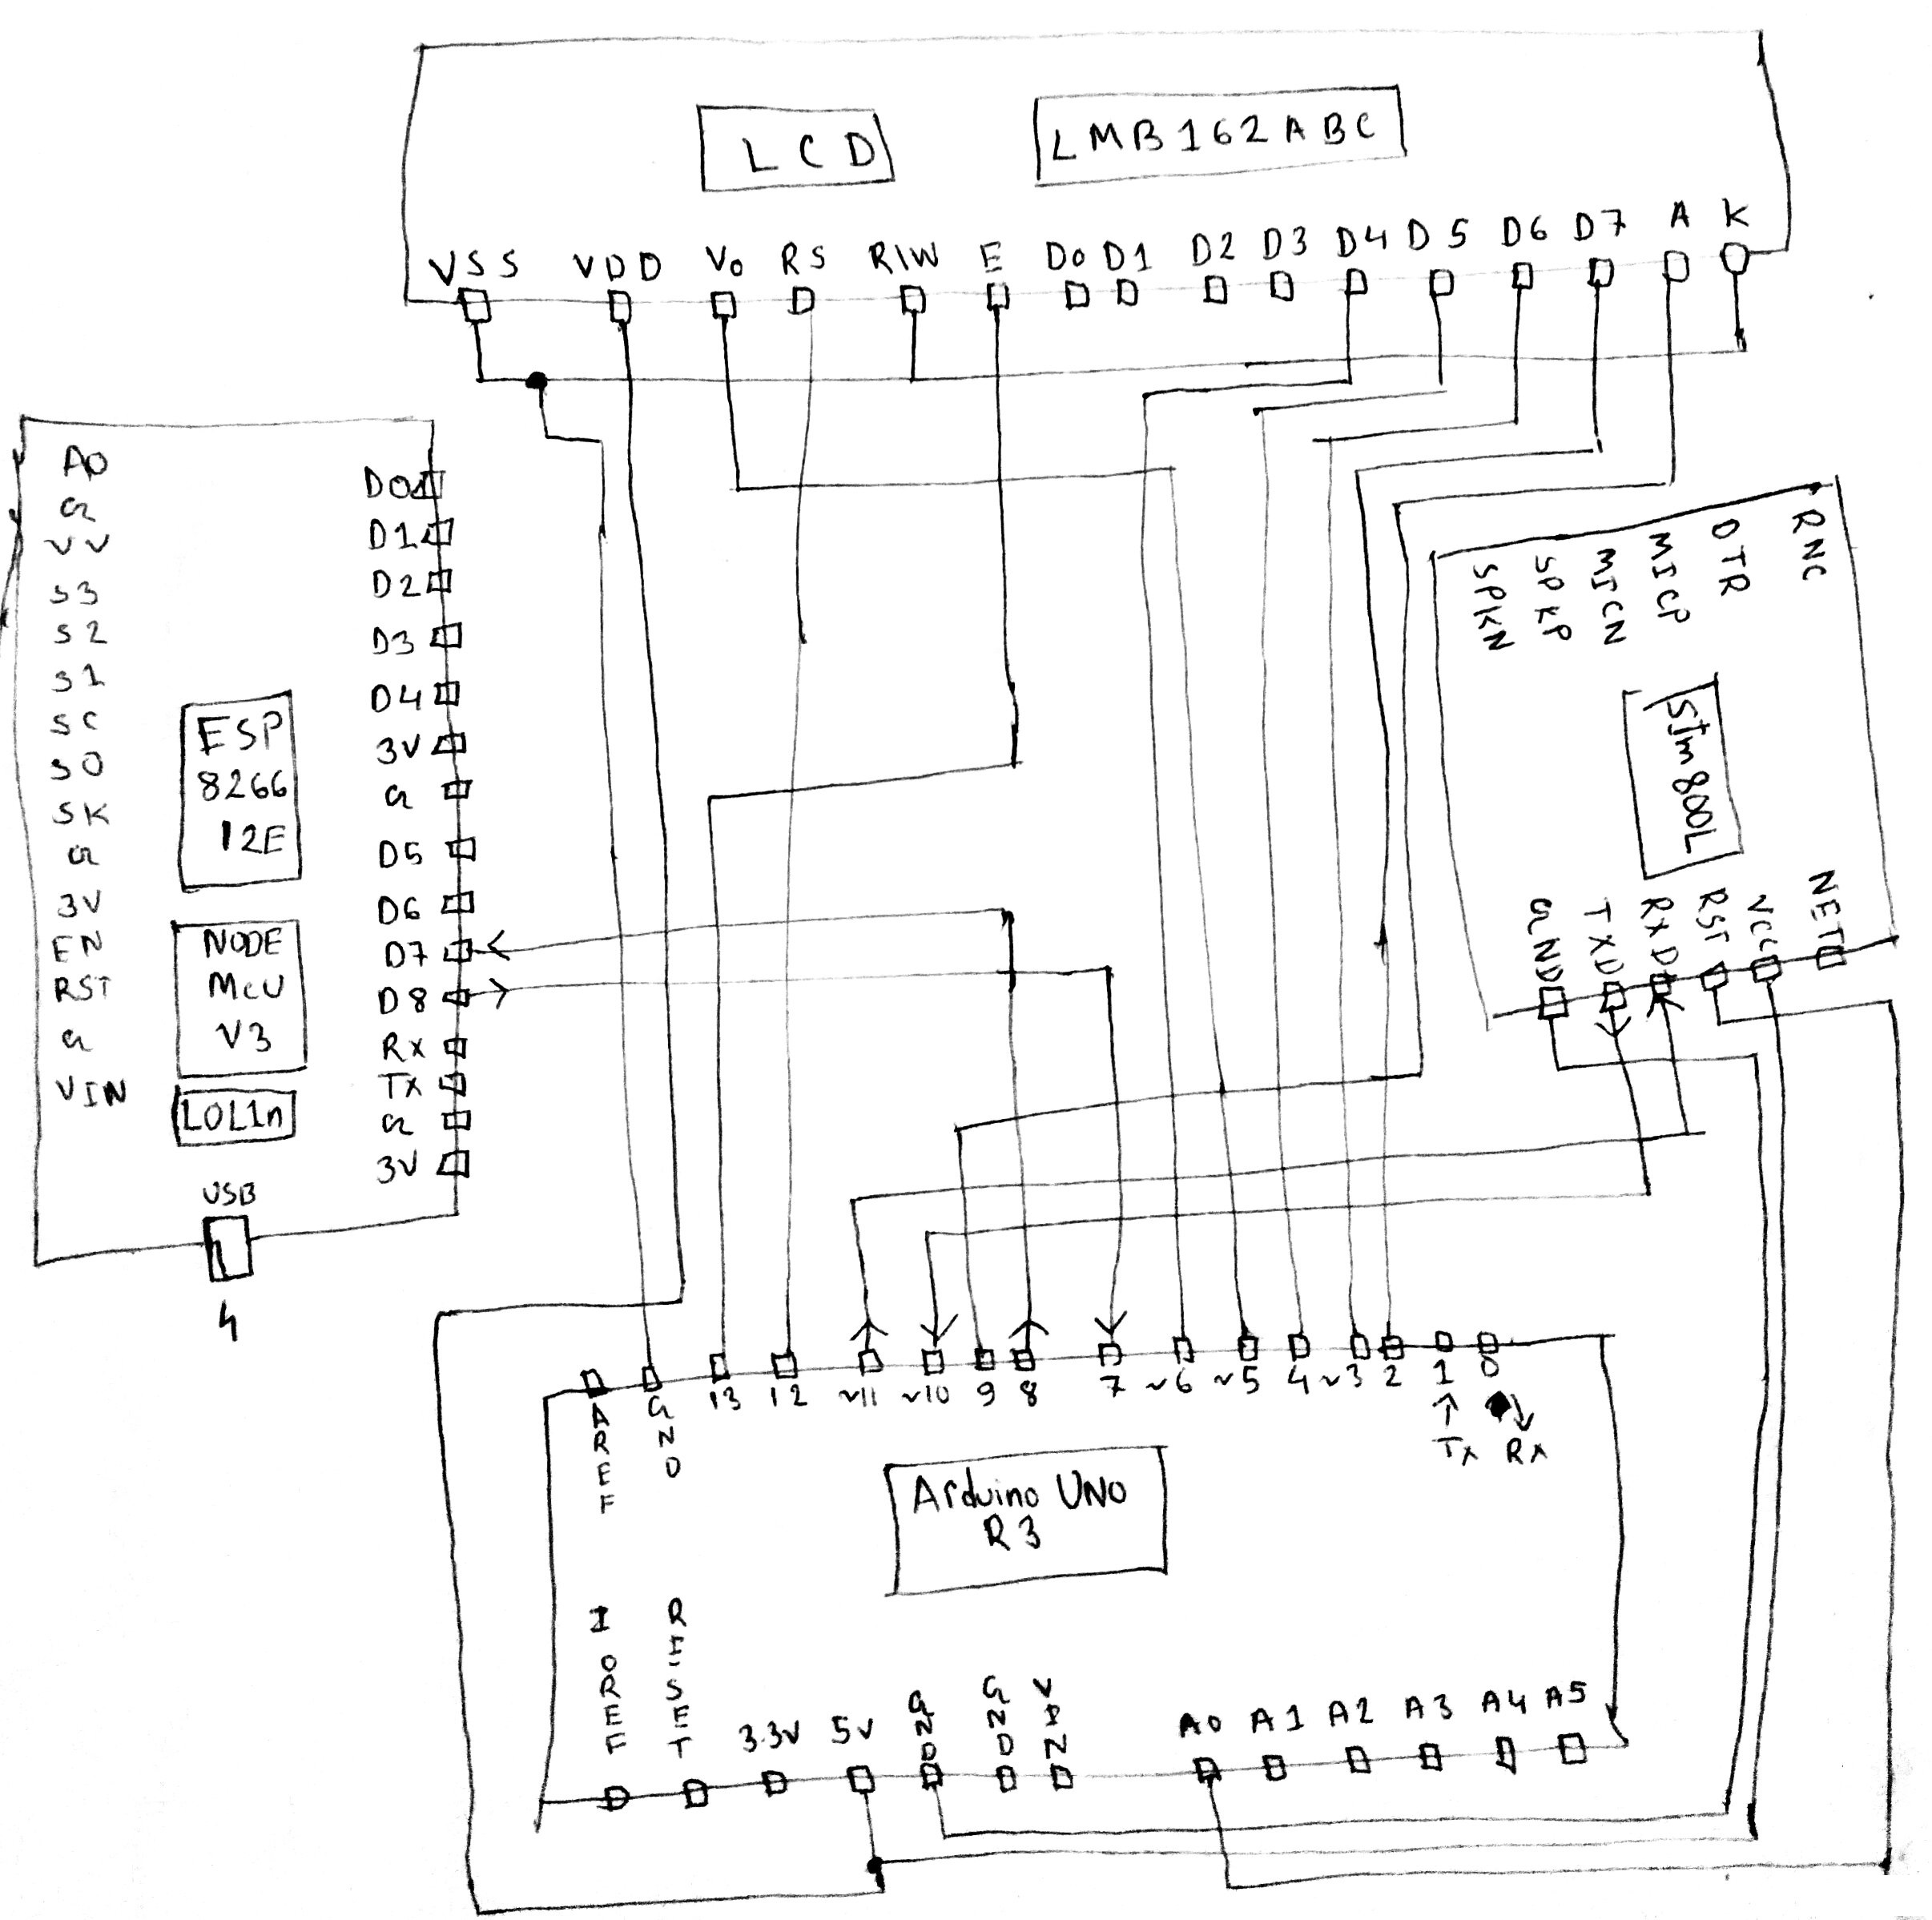 LCD
LMB162ABC
VSS VDD Vo RS R\W E D0 D1 D2 D3 D4 D5 D6 D7 A K
A0
G
VV
S3
S2
S1
SC
S0
SK
G
3V
EN
RST
G
VIN
ESP
8266
12E
NODE
McU
V3
LOL1n
USB
D0
D1
D2
D3
D4
3V
G
D5
D6
D7
D8
Rx
Tx
G
3V
SPKN
SPKP
MICN
MICP
DTR
RNC
SIm800L
GND
TXD
RXD
RST
VCC
NET
AREF
GND
13 12 ~11 ~10 9 8 7 ~6 ~5 4 ~3 2 1 0
Tx Rx
Arduino UNO
R3
IOREF
RESET
3.3V
5V
GND
GND
VIN
A0 A1 A2 A3 A4 A5